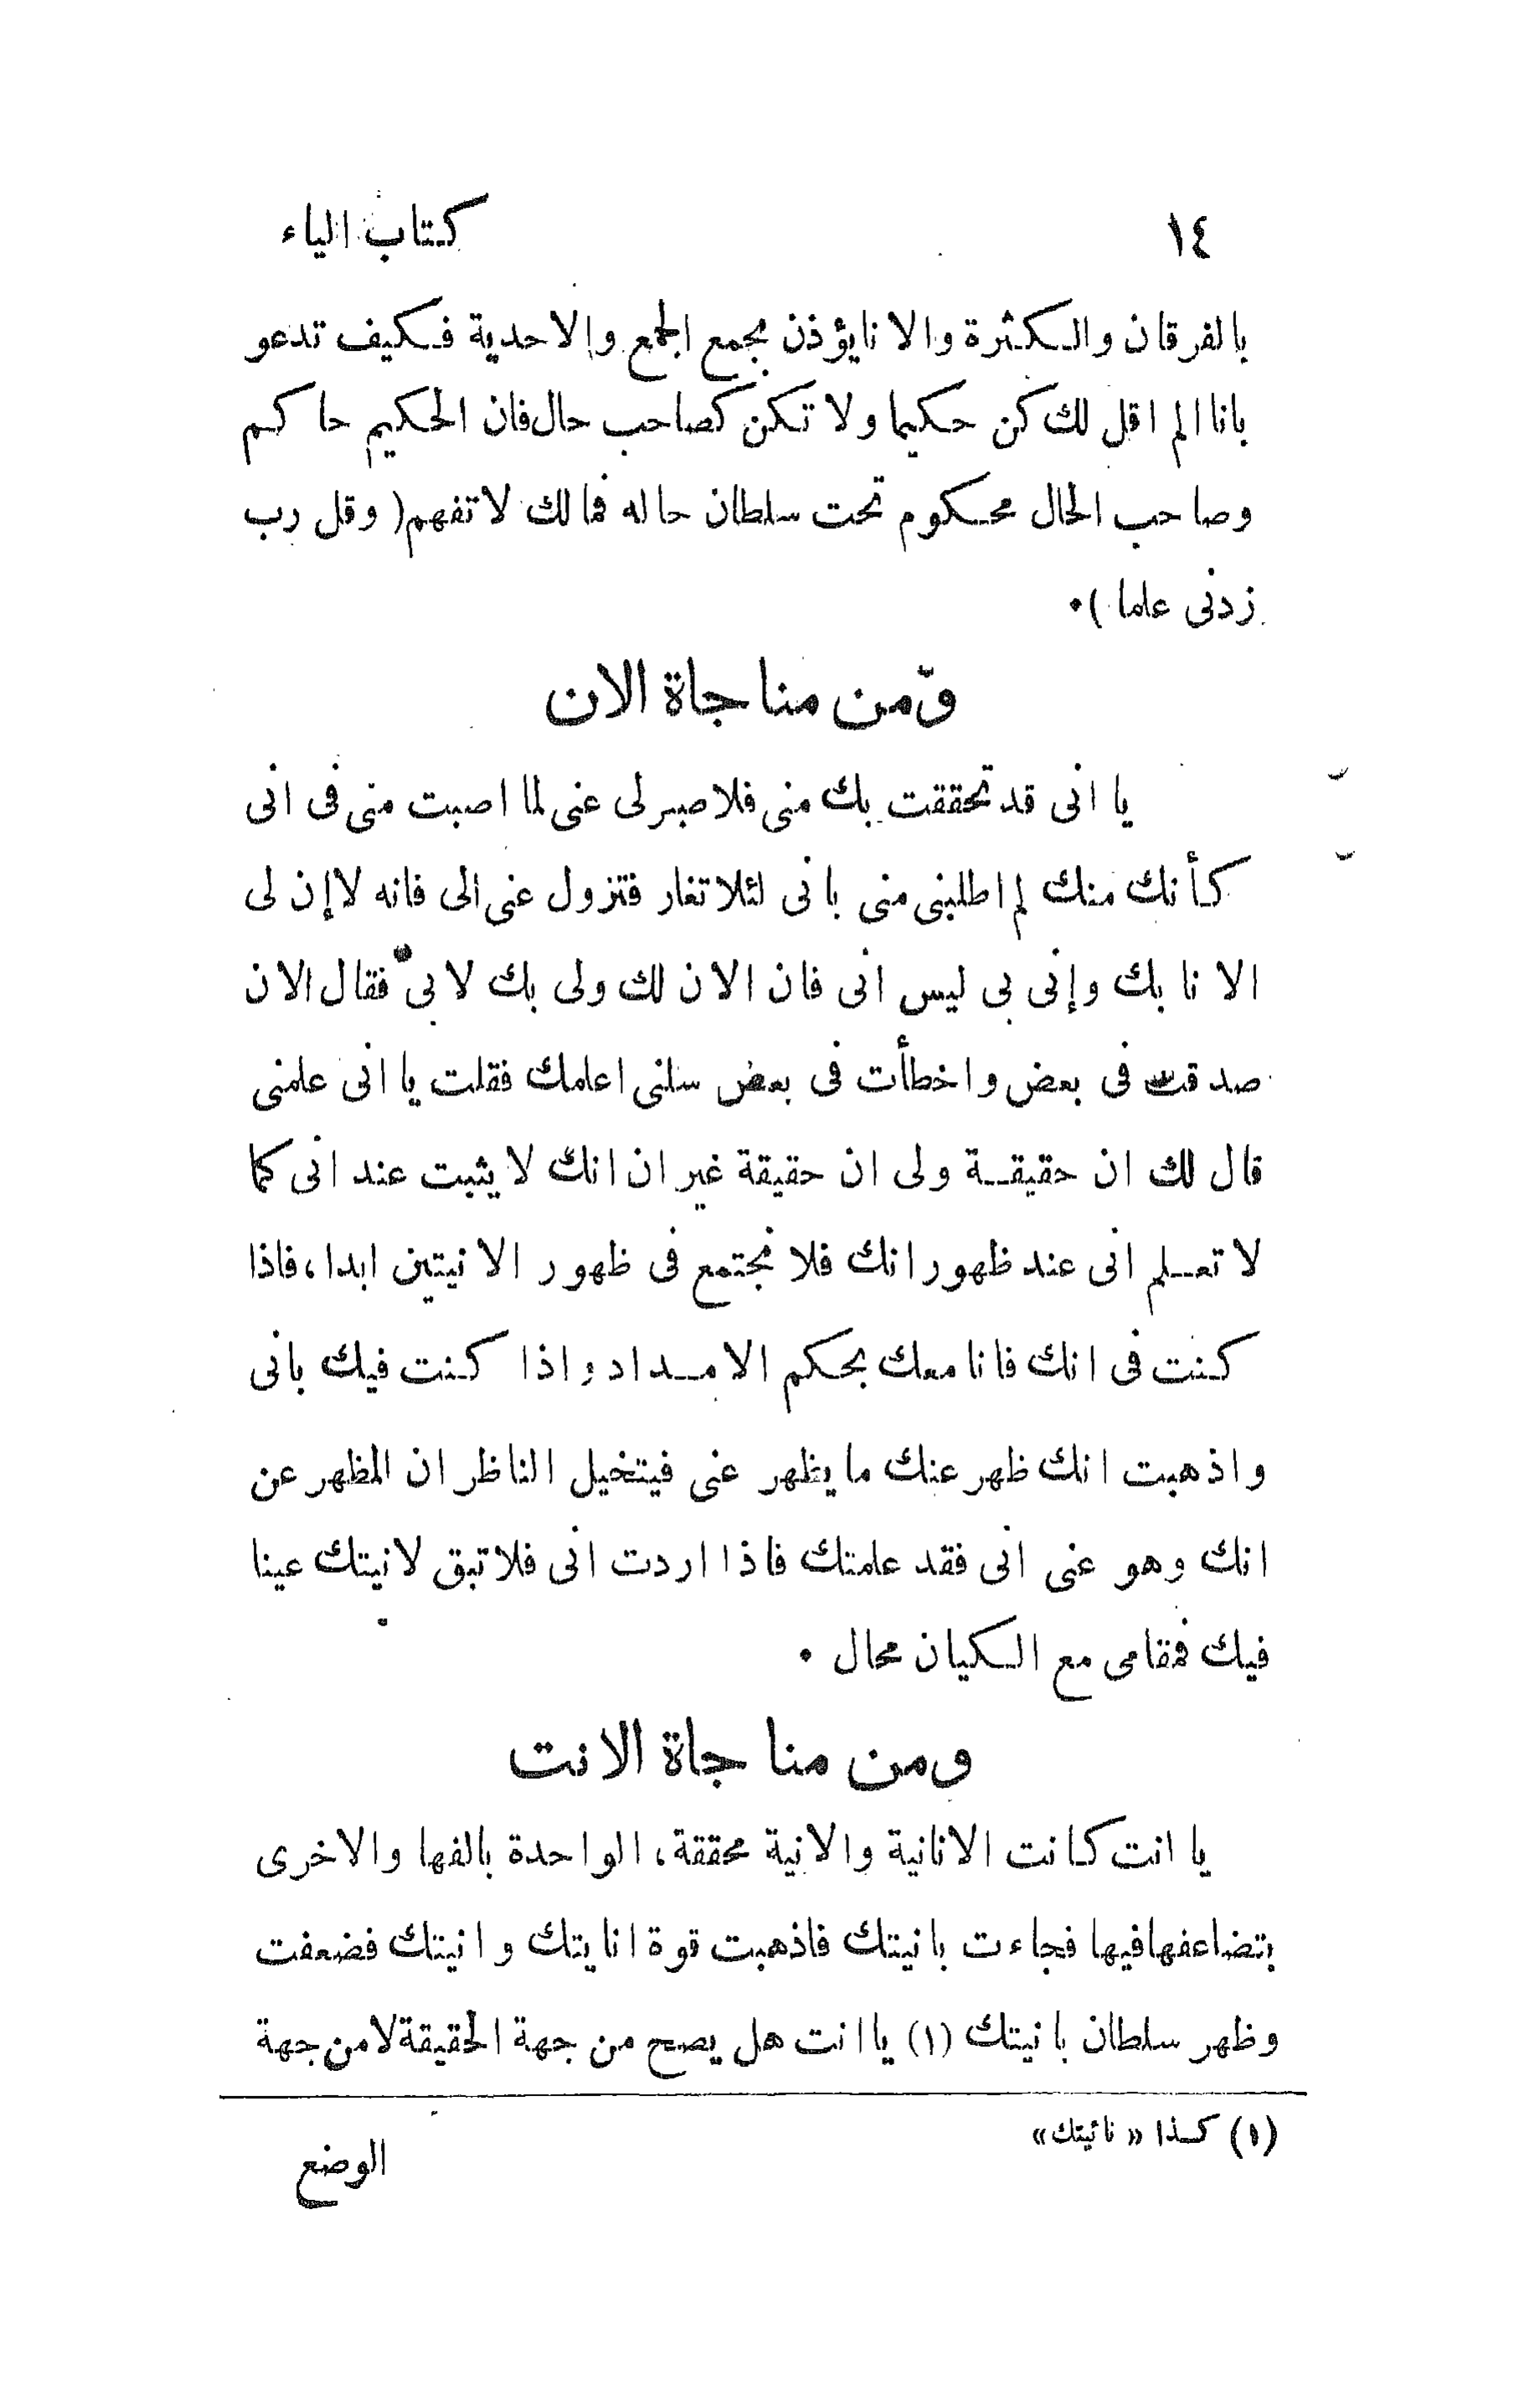 ١٤ كتاب الياء
بالفرقان والكثرة والانا يؤذن بجمع الجمع والاحدية فكيف تدعو
بانا الم اقل لك كن حكيما ولا تكن كصاحب حال فان الحكيم حاكم
وصاحب الحال محكوم تحت سلطان حاله فمالك لا تفهم (وقل رب
زدنى علما).
ومن مناجاة الان
يا انى قد تحققت بك منى فلا صبر لى عنى لما اصبت منى فى انى
كأنك منك لم اطلبنى منى بانى لئلا تغار فتزول عنى الى فانه لا إن لى
الا نا بك وإنى بى ليس انى فان الان لك ولى بك لا بى فقال الان
صدقت فى بعض واخطأت فى بعض سلنى اعلمك فقلت يا انى علمنى
قال لك ان حقيقة ولى ان حقيقة غير ان انك لا يثبت عند انى كما
لا تعلم انى عند ظهور انك فلا نجتمع فى ظهور الانيتين ابدا، فاذا
كنت فى انك فانا معك بحكم الامداد واذا كنت فيك بانى
واذهبت انك ظهر عنك ما يظهر عنى فيتخيل الناظر ان المظهر عن
انك وهو عنى انى فقد علمتك فاذا اردت انى فلا تبق لانيتك عينا
فيك فمقامى مع الكيان محال.
ومن مناجاة الانت
يا انت كانت الانانية والانية محققة، الواحدة بالفها والاخرى
بتضاعفها فيها فجاءت بانيتك فاذهبت قوة انايتك وانيتك فضعفت
وظهر سلطان بانيتك (١) يا انت هل يصح من جهة الحقيقة لا من جهة
(١) كذا «نائيتك»
الوضع